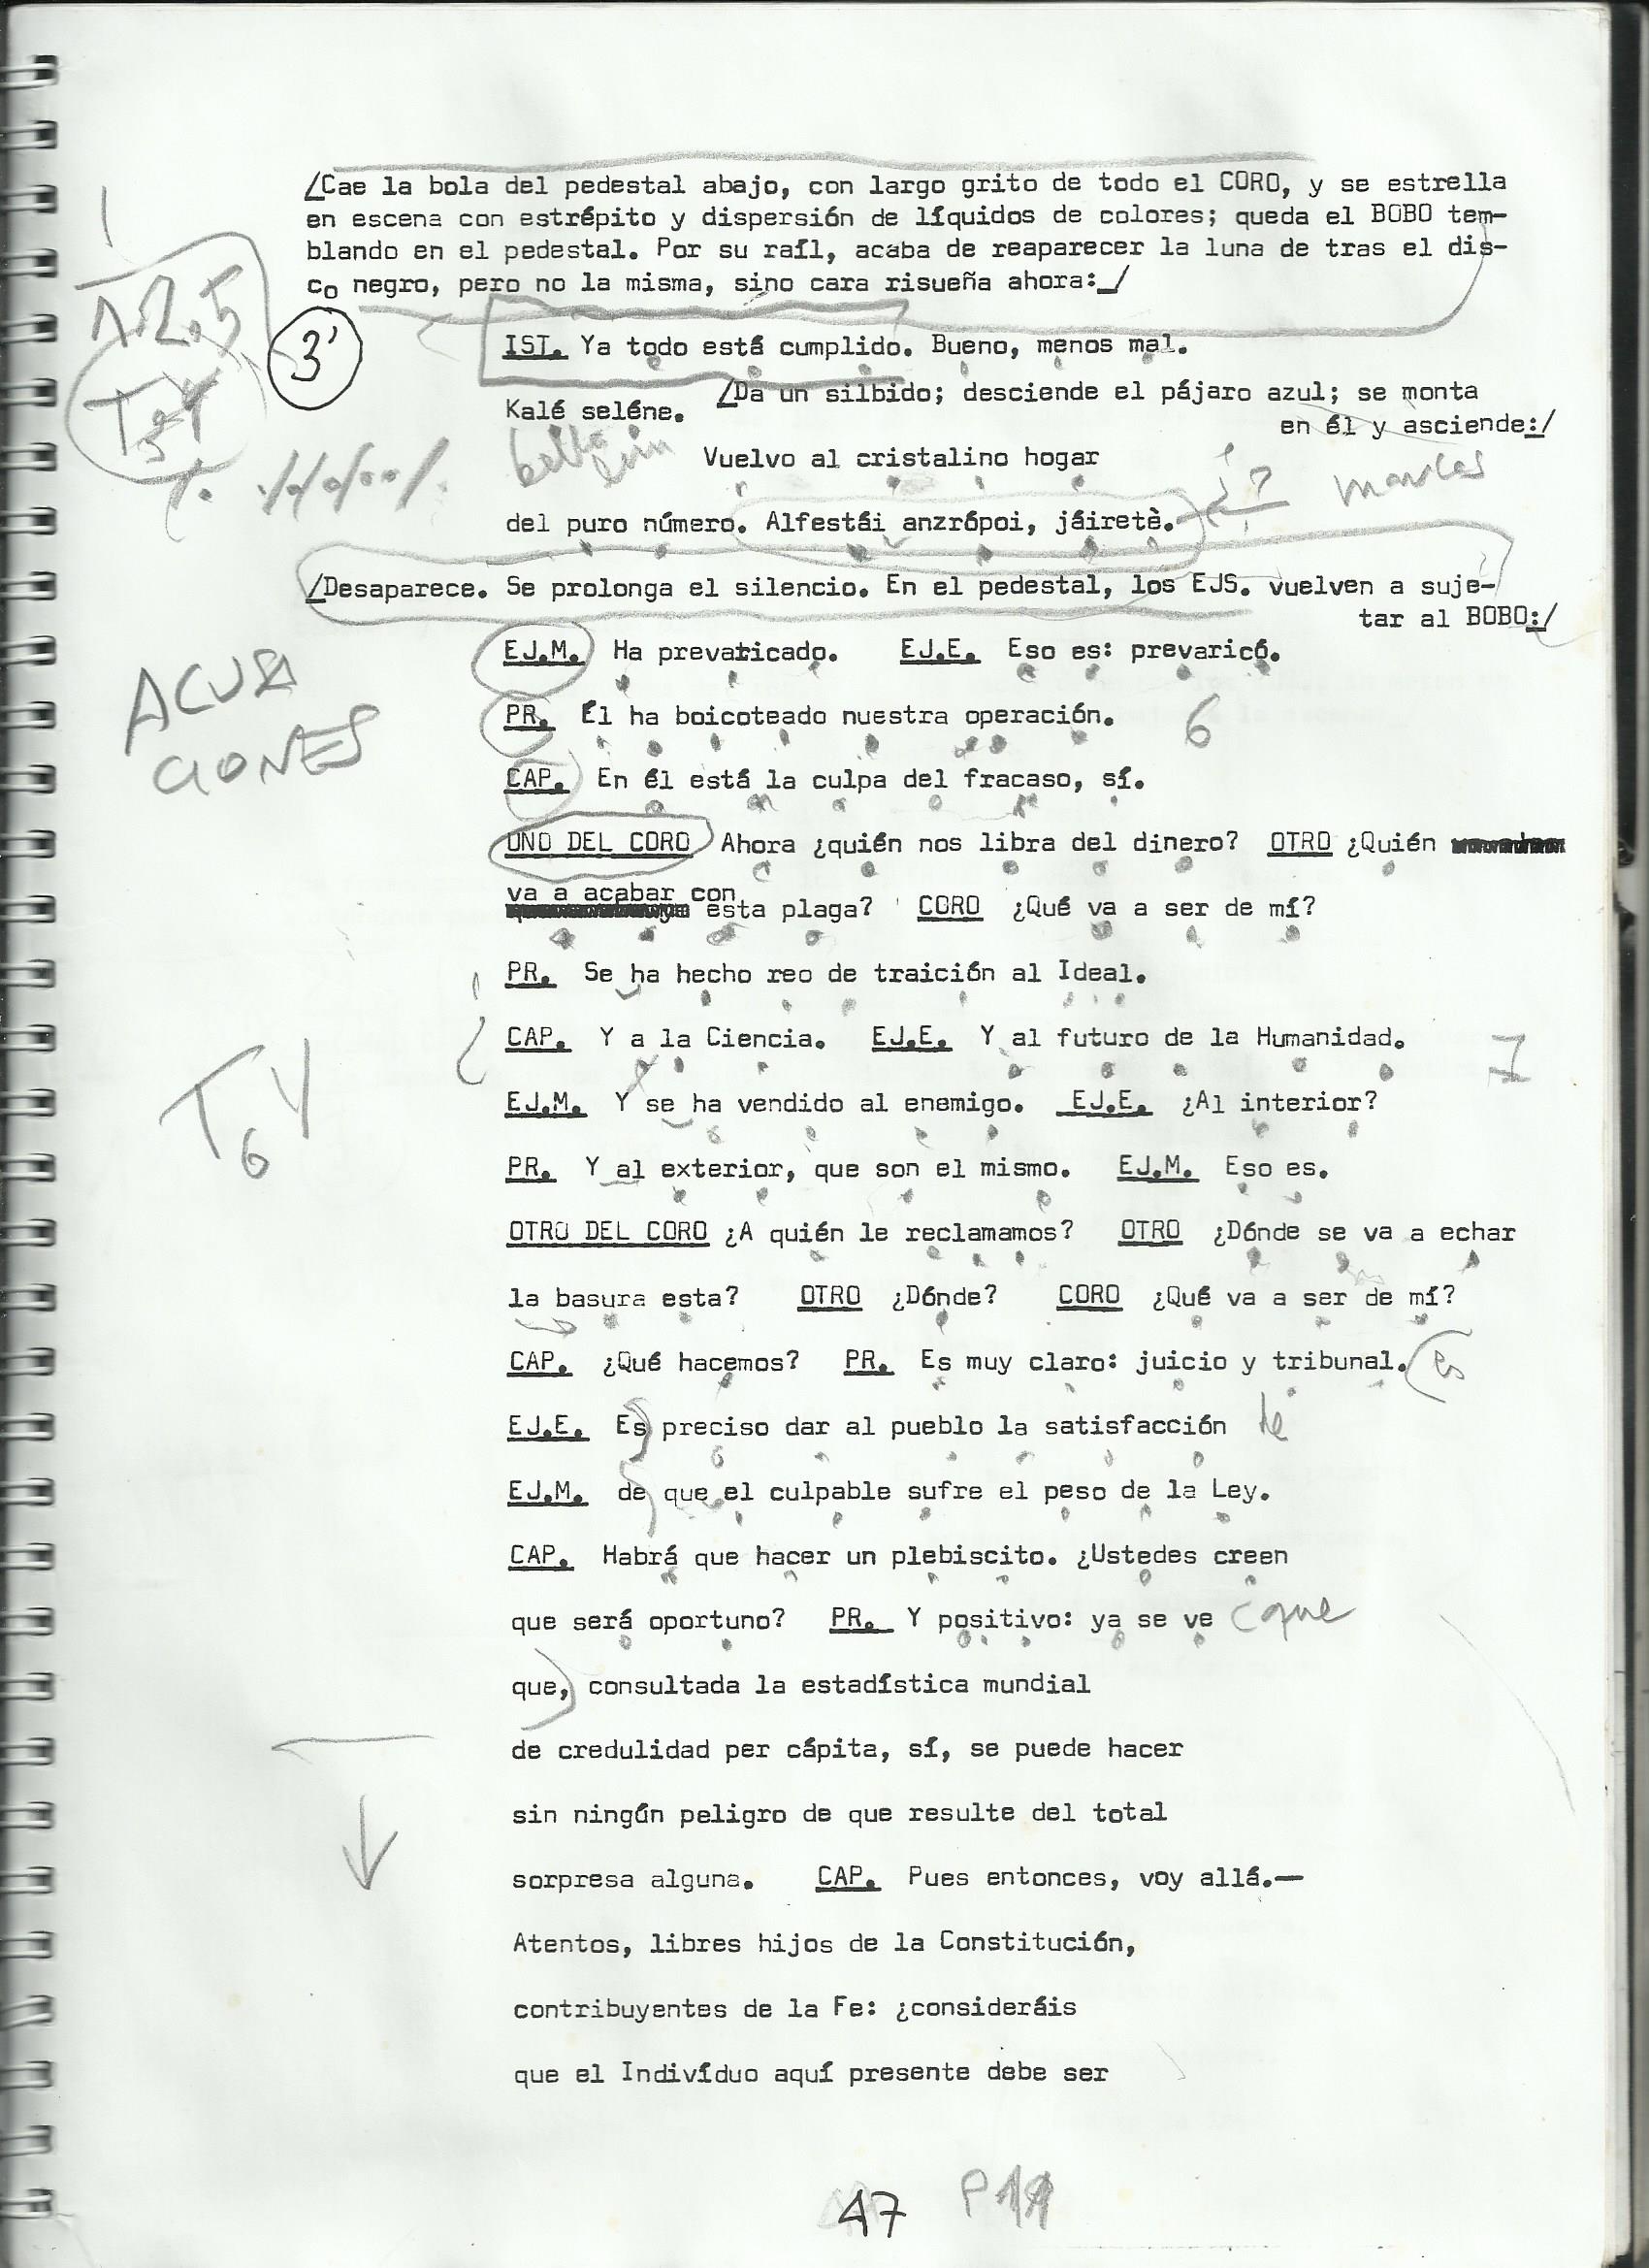 /Cae la bola del pedestal abajo, con largo grito de todo el CORO, y se estrella
en escena con estrépito y dispersión de líquidos de colores; queda el BOBO tem-
blando en el pedestal. Por su raíl, acaba de reaparecer la luna de tras el dis-
co negro, pero no la misma, sino cara risueña ahora:_/
1.2.5
3'
IST. Ya todo está cumplido. Bueno, menos mal.
Kalé seléne. /Da un silbido; desciende el pájaro azul; se monta
en él y asciende:/
Vuelvo al cristalino hogar
marcas
del puro número. Alfestái anzrópoi, jáiretè.
¿?
/Desaparece. Se prolonga el silencio. En el pedestal, los EJS. vuelven a suje-
tar al BOBO:/
ACUSA
CIONES
EJ.M. Ha prevaricado. EJ.E. Eso es: prevaricó.
PR. Él ha boicoteado nuestra operación. 6
CAP. En él está la culpa del fracaso, sí.
UNO DEL CORO Ahora ¿quién nos libra del dinero? OTRO ¿Quién
va a acabar con
esta plaga? CORO ¿Qué va a ser de mí?
PR. Se ha hecho reo de traición al Ideal.
CAP. Y a la Ciencia. EJ.E. Y al futuro de la Humanidad. 7
T6Y
EJ.M. Y se ha vendido al enemigo. EJ.E. ¿Al interior?
PR. Y al exterior, que son el mismo. EJ.M. Eso es.
OTRO DEL CORO ¿A quién le reclamamos? OTRO ¿Dónde se va a echar
la basura esta? OTRO ¿Dónde? CORO ¿Qué va a ser de mí?
CAP. ¿Qué hacemos? PR. Es muy claro: juicio y tribunal. (es
EJ.E. Es) preciso dar al pueblo la satisfacción de
EJ.M. de) que el culpable sufre el peso de la Ley.
CAP. Habrá que hacer un plebiscito. ¿Ustedes creen
que será oportuno? PR. Y positivo: ya se ve (que
que,) consultada la estadística mundial
de credulidad per cápita, sí, se puede hacer
sin ningún peligro de que resulte del total
sorpresa alguna. CAP. Pues entonces, voy allá.—
Atentos, libres hijos de la Constitución,
contribuyentes de la Fe: ¿consideráis
que el Indivíduo aquí presente debe ser
47